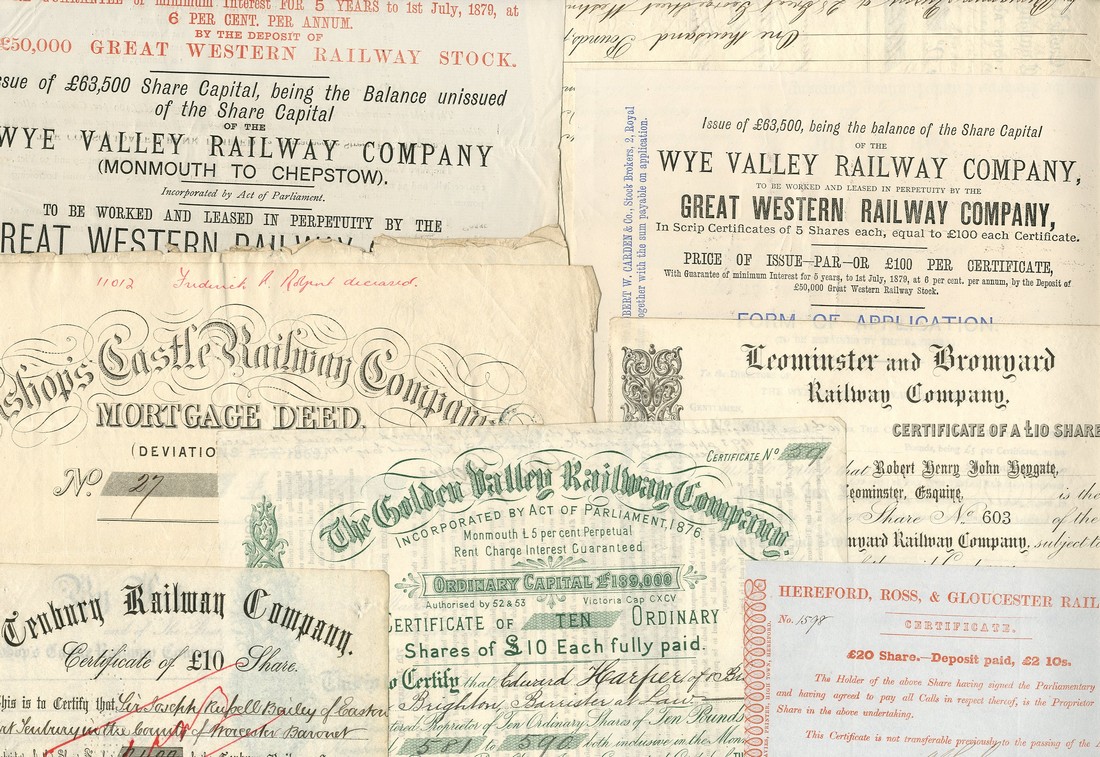 GUARANTEE of minimum Interest FOR 5 YEARS to 1st July, 1879, at
6 PER CENT. PER ANNUM.
BY THE DEPOSIT OF
£50,000 GREAT WESTERN RAILWAY STOCK.
ssue of £63,500 Share Capital, being the Balance unissued
of the Share Capital
OF THE
WYE VALLEY RAILWAY COMPANY
(MONMOUTH TO CHEPSTOW).
Incorporated by Act of Parliament.
TO BE WORKED AND LEASED IN PERPETUITY BY THE
REAT WESTERN RAILWAY
One thousand Pounds
BERT W. CARDEN & Co., Stock Brokers, 2, Royal
ogether with the sum payable on application.
Issue of £63,500, being the balance of the Share Capital
OF THE
WYE VALLEY RAILWAY COMPANY,
TO BE WORKED AND LEASED IN PERPETUITY BY THE
GREAT WESTERN RAILWAY COMPANY,
In Scrip Certificates of 5 Shares each, equal to £100 each Certificate.
PRICE OF ISSUE—PAR—OR £100 PER CERTIFICATE,
With Guarantee of minimum Interest for 5 years, to 1st July, 1879, at 6 per cent. per annum, by the Deposit of
£50,000 Great Western Railway Stock.
FORM OF APPLICATION.
11012 Frederick R. deceased.
shop's Castle Railway Company
MORTGAGE DEED.
(DEVIATIO
No. 27
Leominster and Bromyard
Railway Company.
CERTIFICATE OF A £10 SHARE
hat Robert Henry John Heygate,
eominster, Esquire, is the
Share No. 603 of the
yard Railway Company, subject to
CERTIFICATE No
The Golden Valley Railway Company.
INCORPORATED BY ACT OF PARLIAMENT, 1876.
Monmouth £5 per cent Perpetual
Rent Charge Interest Guaranteed
ORDINARY CAPITAL £189,000
Authorised by 52 & 53 Victoria Cap CXCV
CERTIFICATE OF TEN ORDINARY
Shares of £10 Each fully paid.
o Certify that Edward Harper of
Brighton, Barrister at Law
tered Proprietor of Ten Ordinary Shares of Ten Pounds
581 to 590 both inclusive in the
Tenbury Railway Company.
Certificate of £10 Share.
This is to Certify that Sir Joseph Russell Bailey of Easton
Tenbury in the County of Worcester Baronet
HEREFORD, ROSS, & GLOUCESTER RAIL
No. 1598
CERTIFICATE.
£20 Share.—Deposit paid, £2 10s.
The Holder of the above Share having signed the Parliamentary
and having agreed to pay all Calls in respect thereof, is the Proprietor
Share in the above undertaking.
This Certificate is not transferable previously to the passing of the A